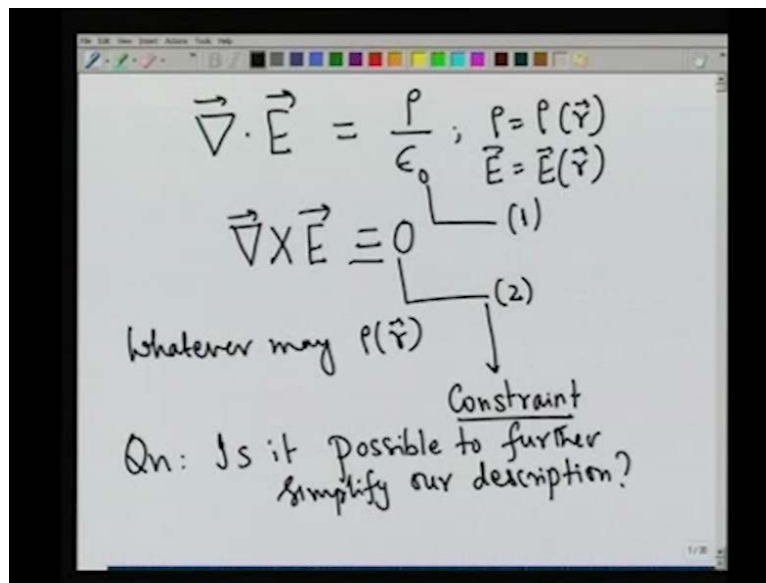 File Edit View Insert Actions Tools Help
∇⃗ · E⃗ = ρ/ϵ₀ ; ρ = ρ(r⃗)
E⃗ = E⃗(r⃗)
(1)
∇⃗ X E⃗ ≡ 0
(2)
Whatever may ρ(r⃗)
Constraint
Qn: Is it possible to further
simplify our description?